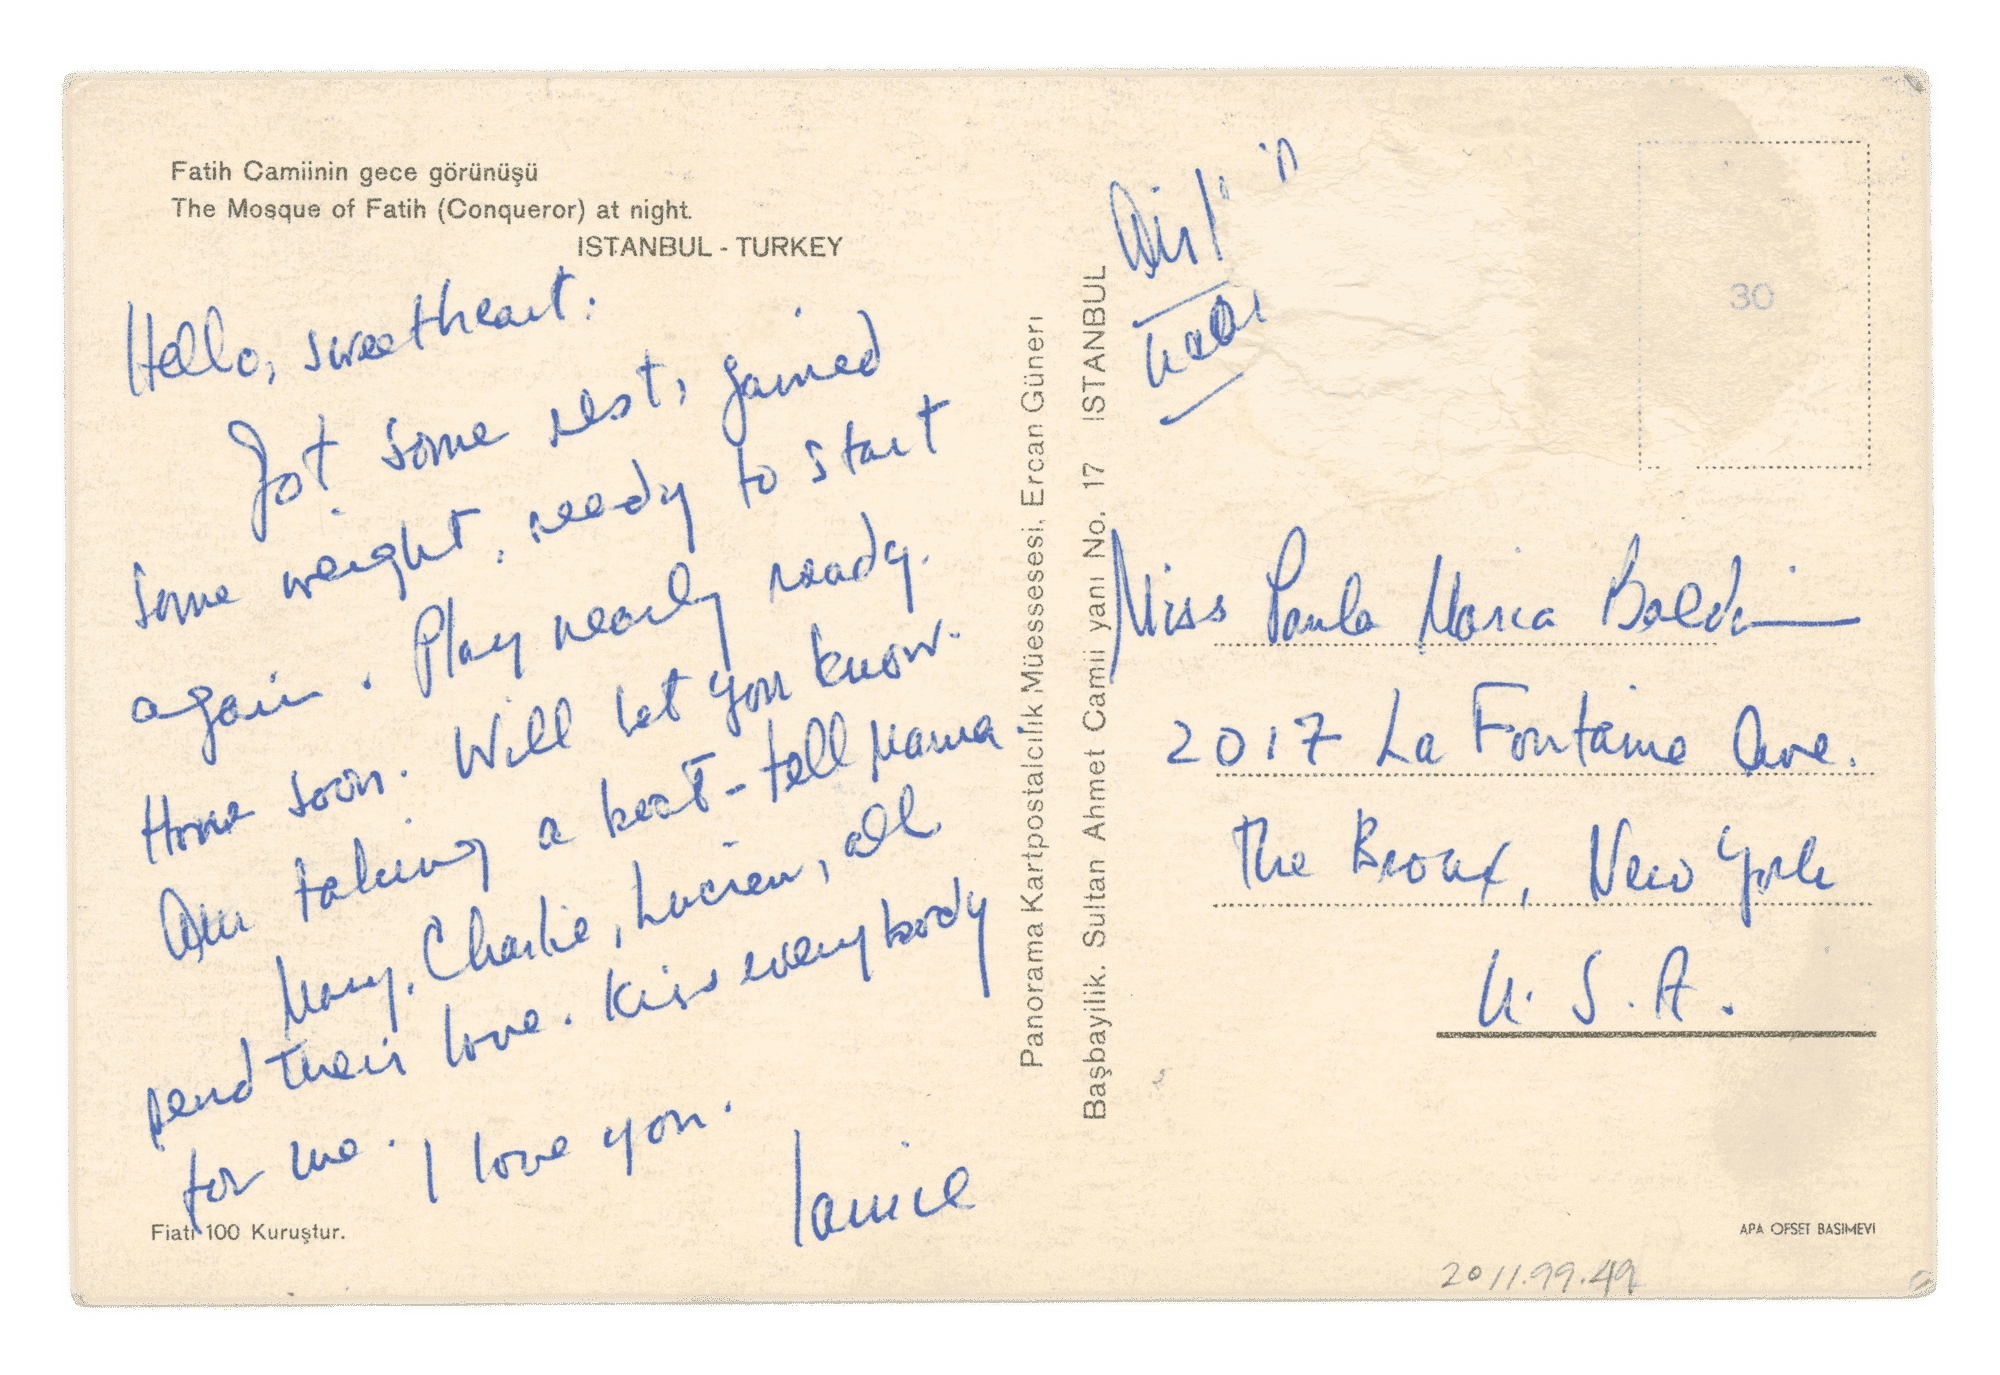 Fatih Camiinin gece görünüşü
The Mosque of Fatih (Conqueror) at night.
ISTANBUL - TURKEY
Hello, sweetheart:
Got some rest, gained
some weight, ready to start
again. Play nearly ready.
Home soon. Will let you know.
Am taking a boat - tell Mama.
Mary, Charlie, Lucien, all
send their love. Kiss everybody
for me. I love you.
Jamie
Fiatı 100 Kuruştur.
Panorama Kartpostalcılık Müessesesi, Ercan Günerı
Başbayilik. Sultan Ahmet Camii yanı No. 17 ISTANBUL
30
Miss Paula Maria Baldwin
2017 La Fontaine Ave.
The Bronx, New York
U. S. A.
APA OFSET BASIMEVI
2011.99.49